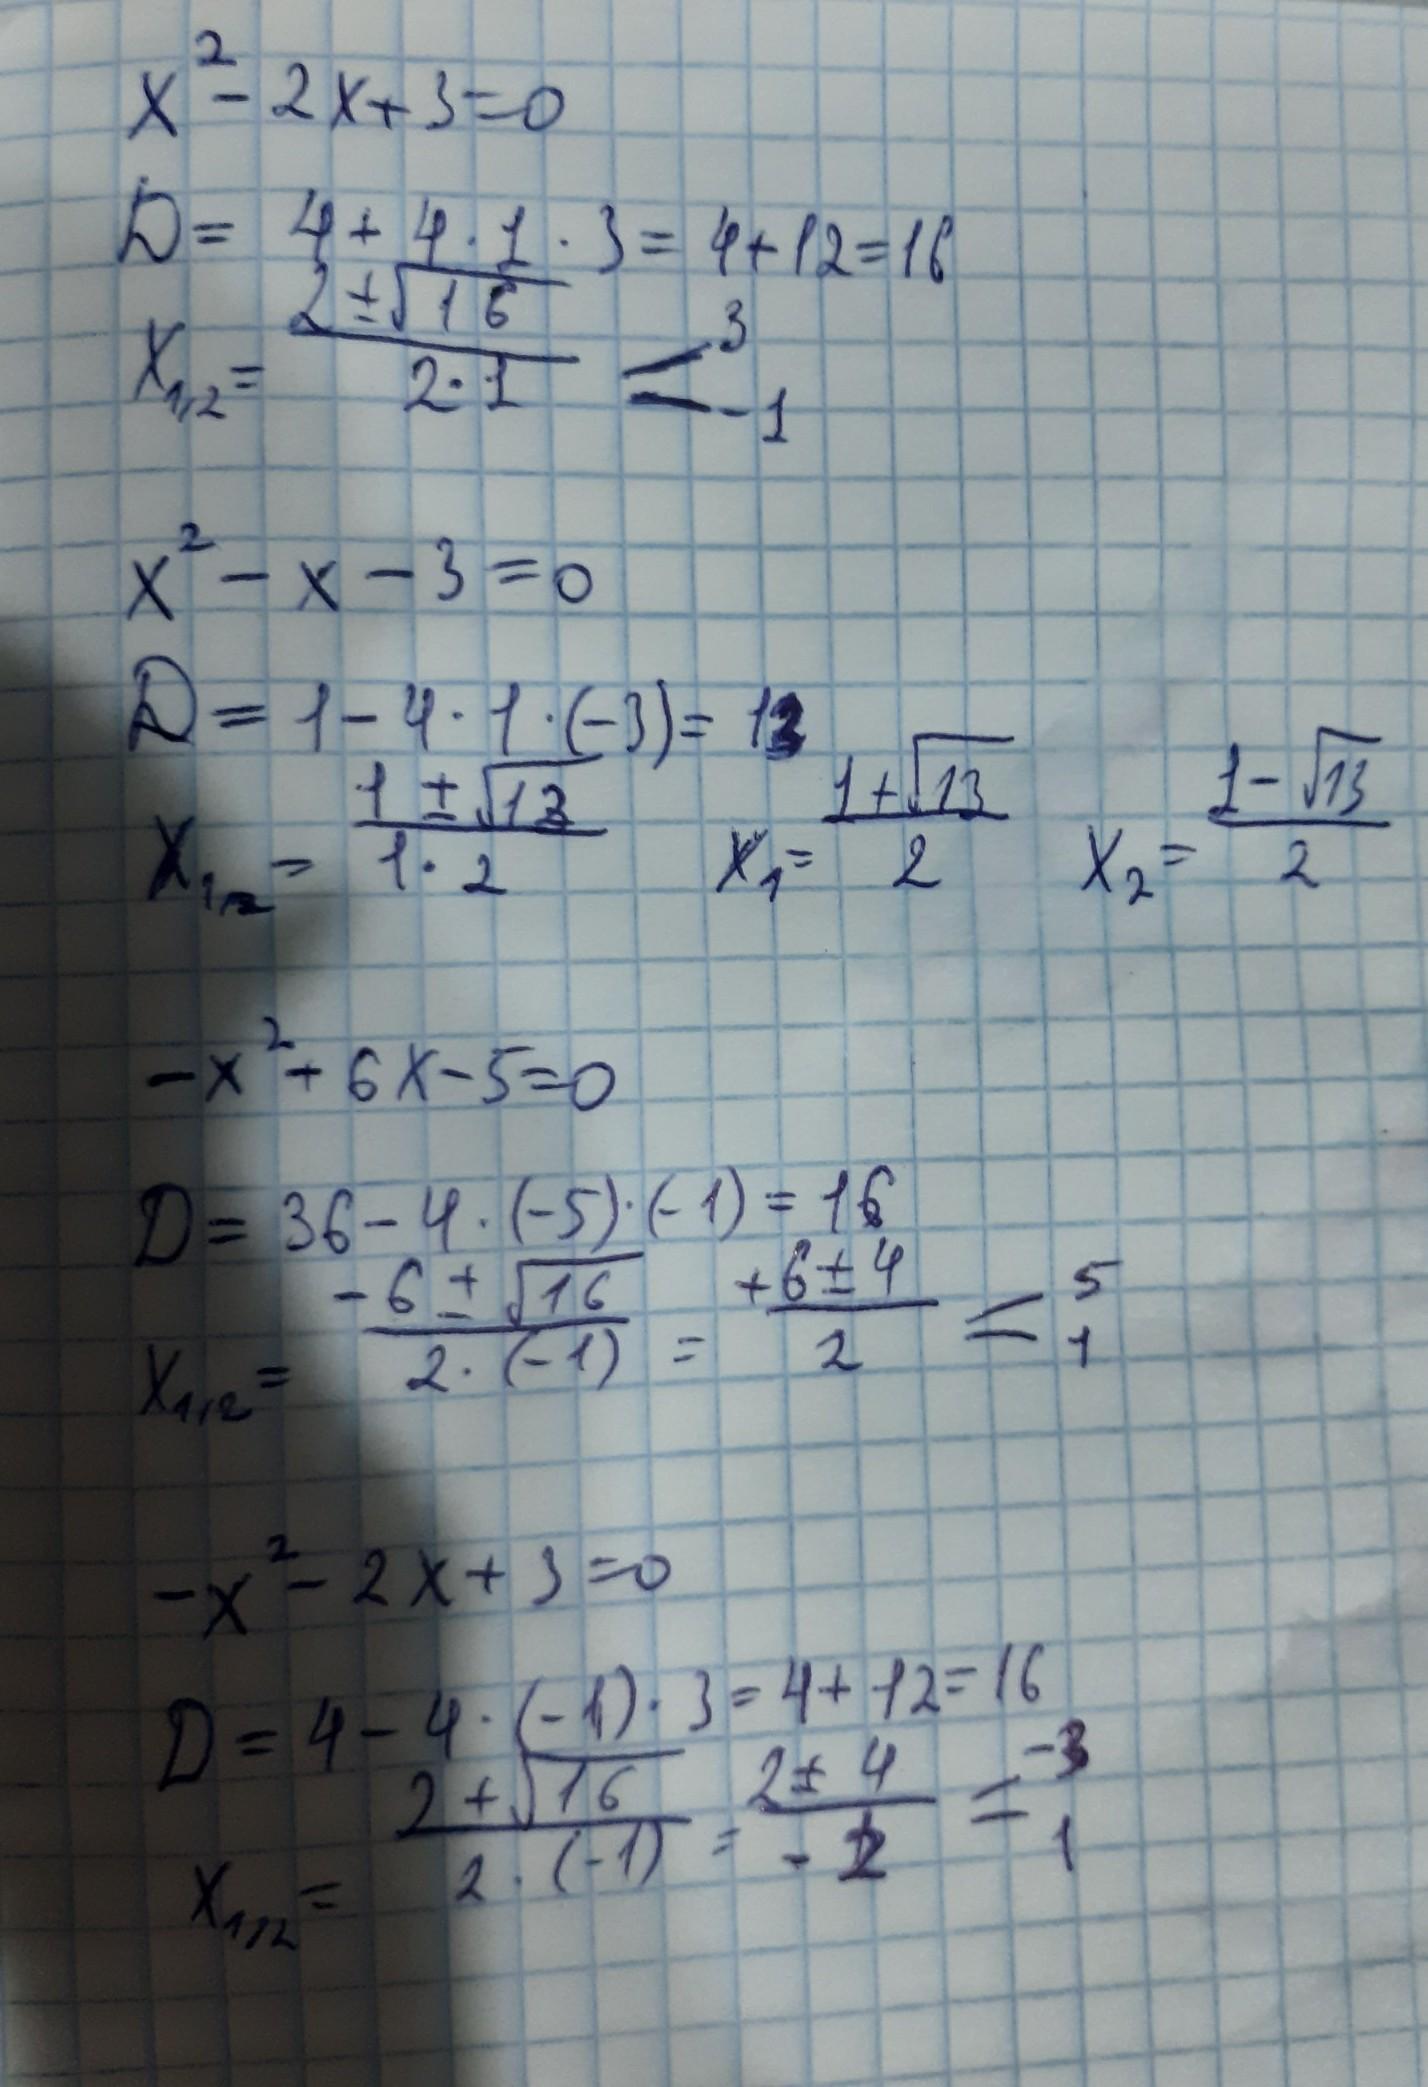 x² - 2x + 3 = 0
D = 4 + 4 · 1 · 3 = 4 + 12 = 16
x₁,₂ = (2 ± √16) / (2 · 1) < 3 -1
x² - x - 3 = 0
D = 1 - 4 · 1 · (-3) = 13
x₁,₂ = (1 ± √13) / (1 · 2) x₁ = (1 + √13) / 2 x₂ = (1 - √13) / 2
-x² + 6x - 5 = 0
D = 36 - 4 · (-5) · (-1) = 16
x₁,₂ = (-6 ± √16) / (2 · (-1)) = (+6 ± 4) / 2 < 5 1
-x² - 2x + 3 = 0
D = 4 - 4 · (-1) · 3 = 4 + 12 = 16
x₁,₂ = (2 + √16) / (2 · (-1)) = (2 ± 4) / -2 < -3 1